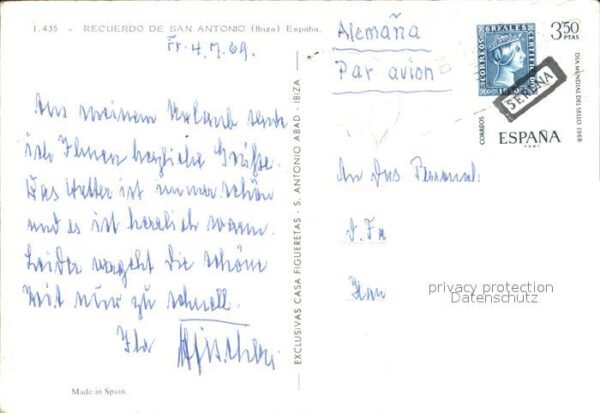 1.435 - RECUERDO DE SAN ANTONIO (Ibiza) España.
Fr. 4.7.69.
Aus meinem Urlaub sende
ich Ihnen herzliche Grüße.
Das Wetter ist immer schön
und es ist herrlich warm.
Leider vergeht die schöne
Zeit nur zu schnell.
Ihr
Made in Spain.
EXCLUSIVAS CASA FIGUERETAS - S. ANTONIO ABAD - IBIZA
Alemaña
Par avion
CORREOS
6 REALES
CERTIFICADO
1850
3'50
PTAS
SERENA
DIA MUNDIAL DEL SELLO 1968
CORREOS
ESPAÑA
An das Personal.
d. Fa
Han
privacy protection
Datenschutz